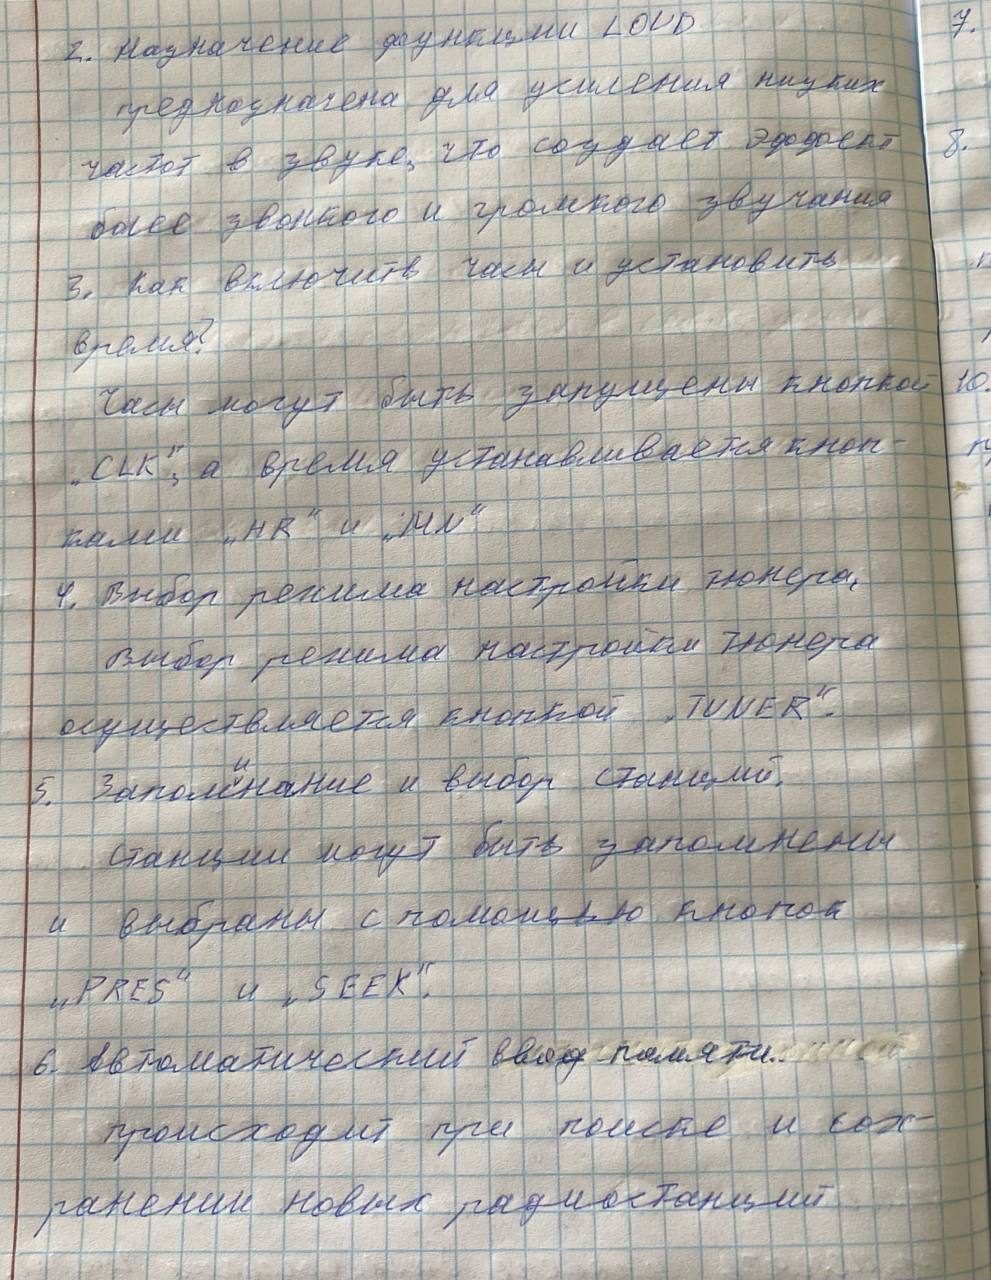 2. Назначение функции LOUD
предназначена для усиления низких
частот в звуке, что создает эффект
более звонкого и громкого звучания
3. Как включить часы и установить
время?
Часы могут быть запущены кнопкой
„CLK", а время устанавливается кноп-
ками „HR" и „MN"
4. Выбор режима настройки тюнера.
Выбор режима настройки тюнера
осуществляется кнопкой „TUNER".
5. Запоминание и выбор станций.
Станции могут быть запомнены
и выбраны с помощью кнопок
„PRES" и „SEEK".
6. Автоматический ввод памяти..
происходит при поиске и сох-
ранении новых радиостанций
7.
8.
10.